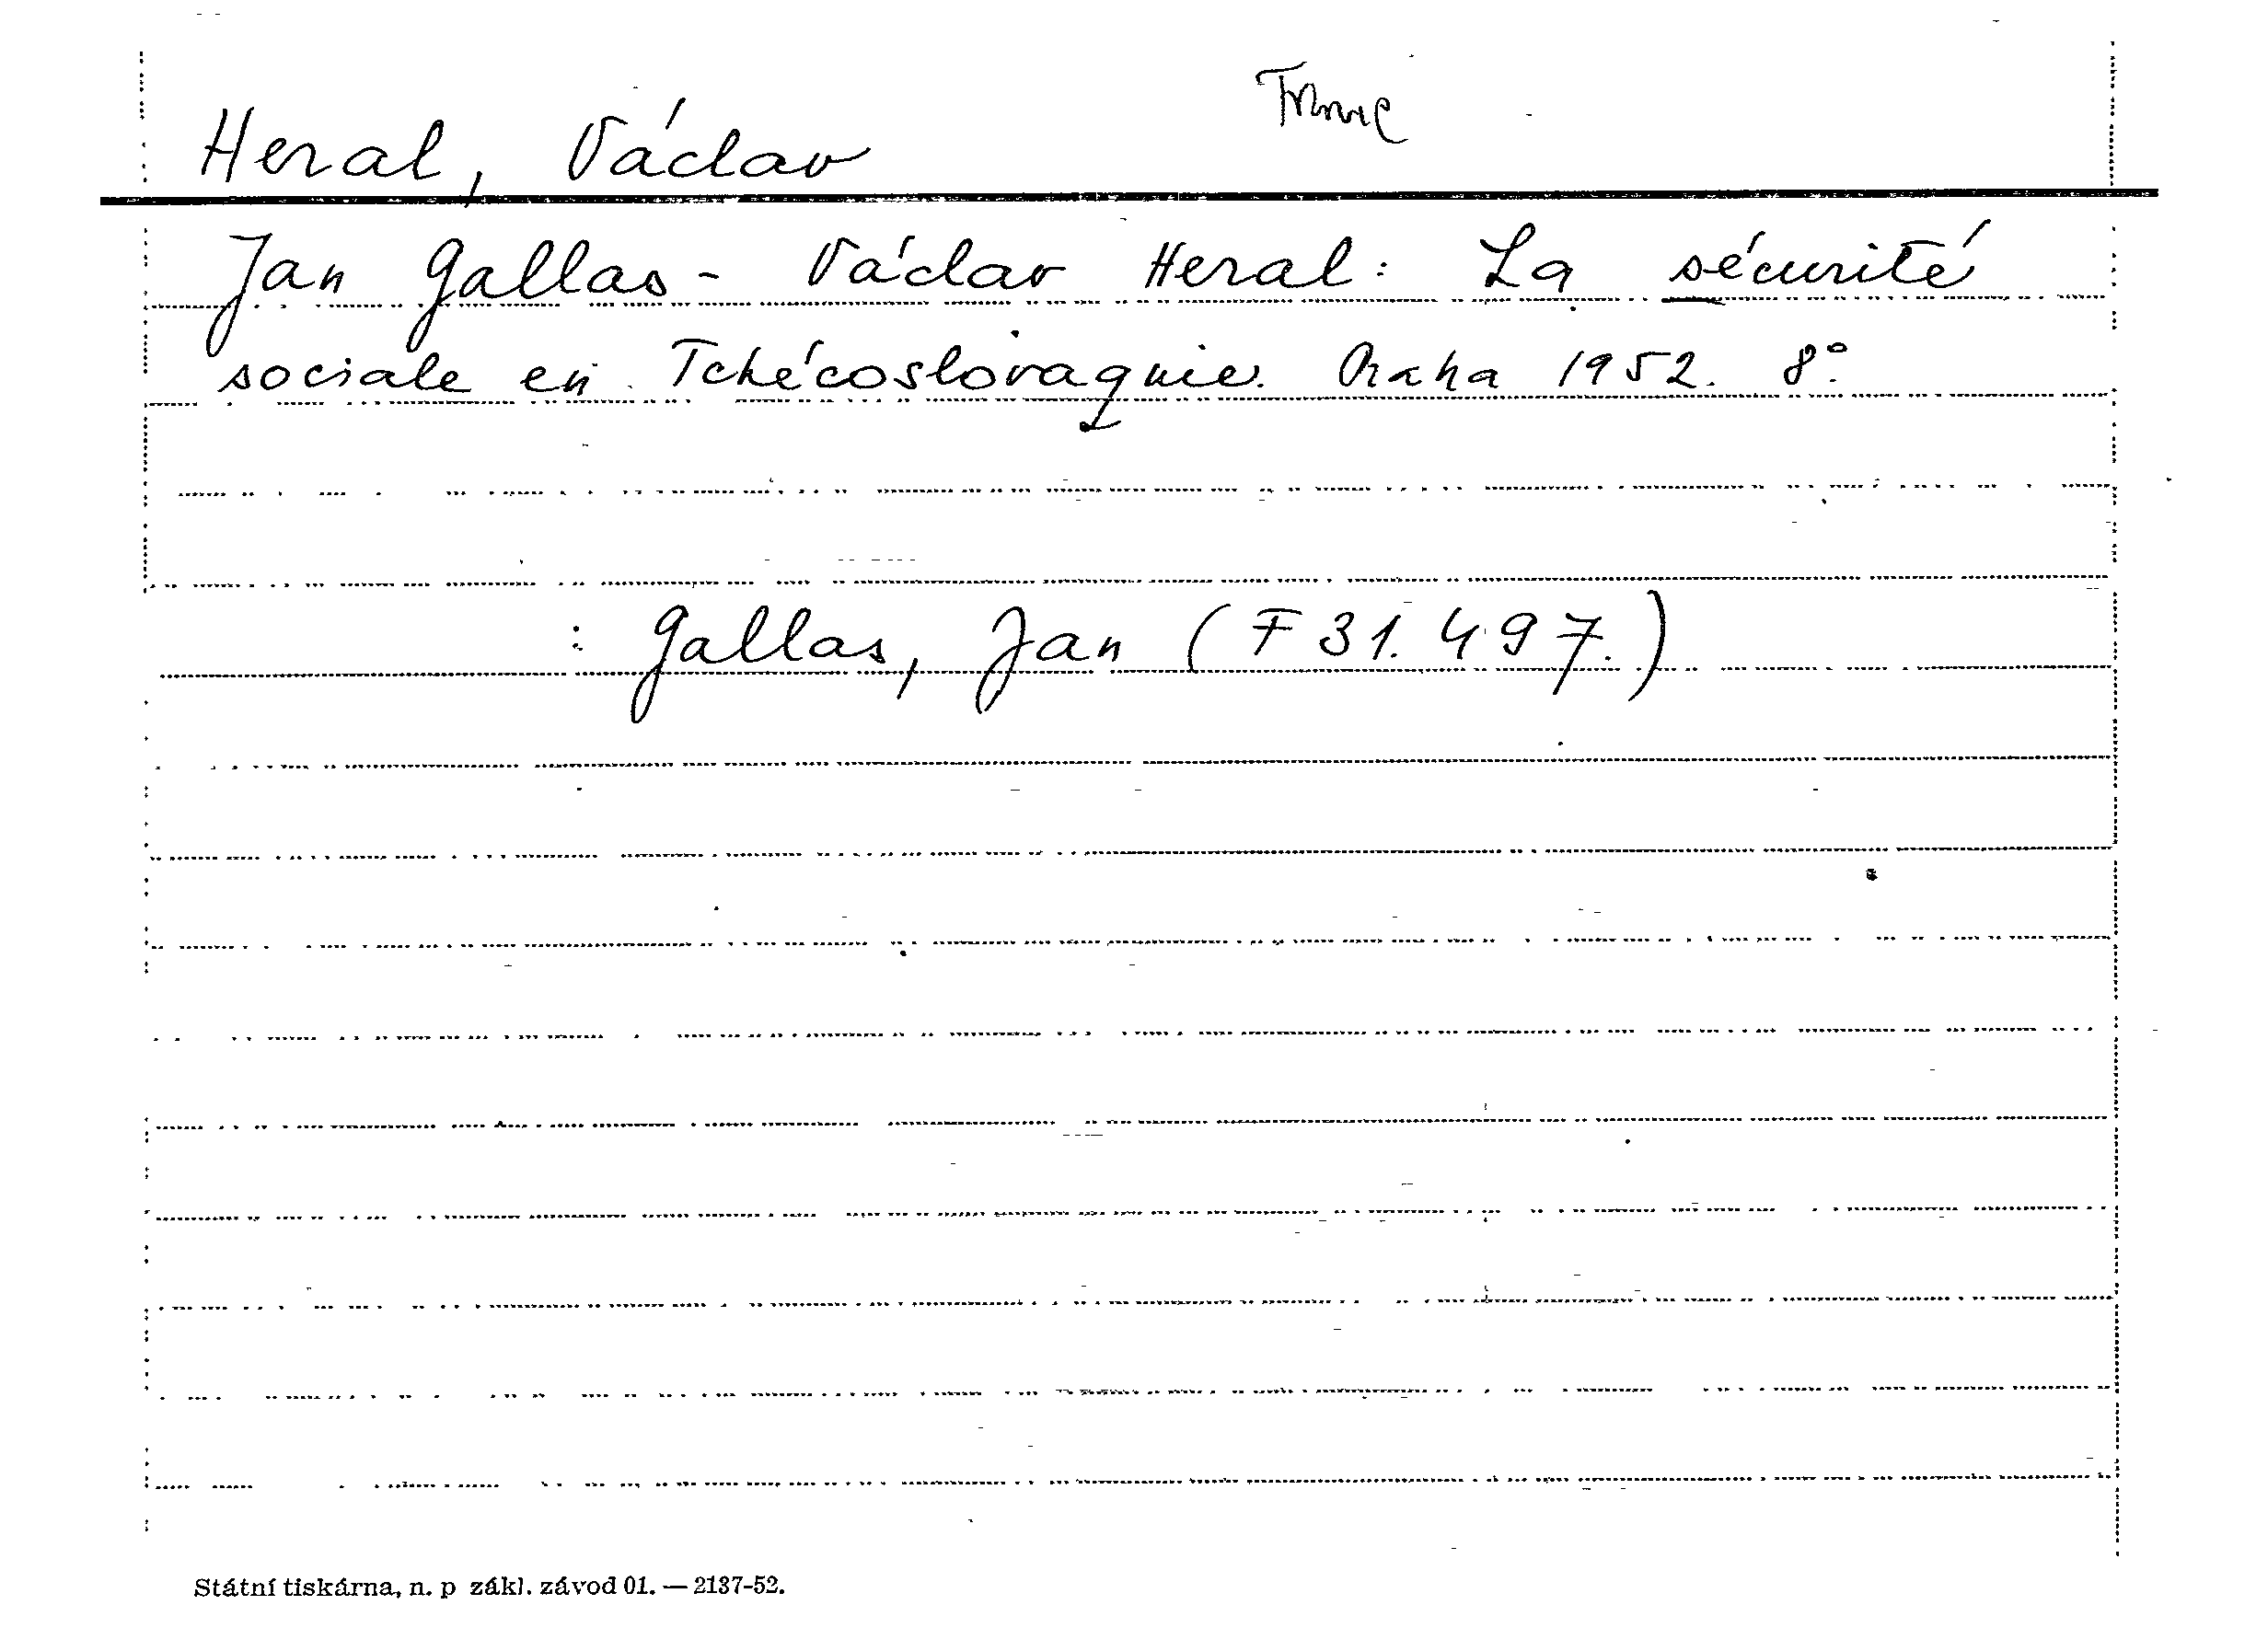 Heral, Václav
Jan Gallas - Václav Heral: La sécurité
sociale en Tchécoslovaquie. Praha 1952. 8°.
: Gallas, Jan (F 31.497.)
Státní tiskárna, n. p zákl. závod 01. — 2137-52.